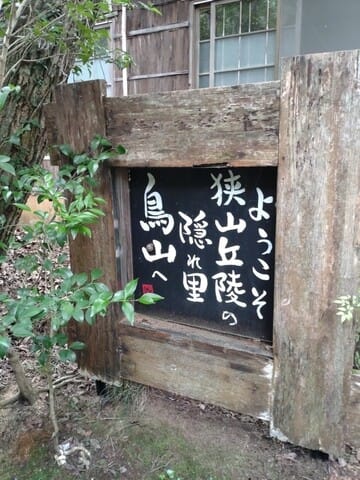 ようこそ
狭山丘陵の
隠れ里
鳥山へ